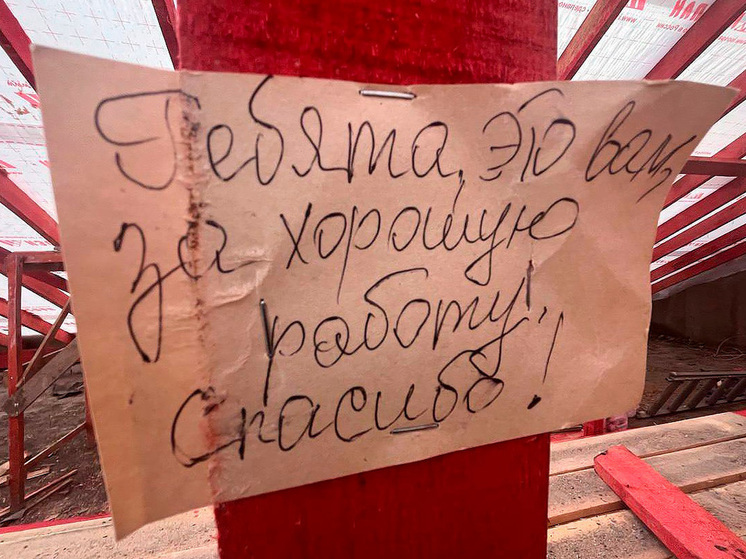 Ребята, это вам,
за хорошую
работу!
Спасибо!